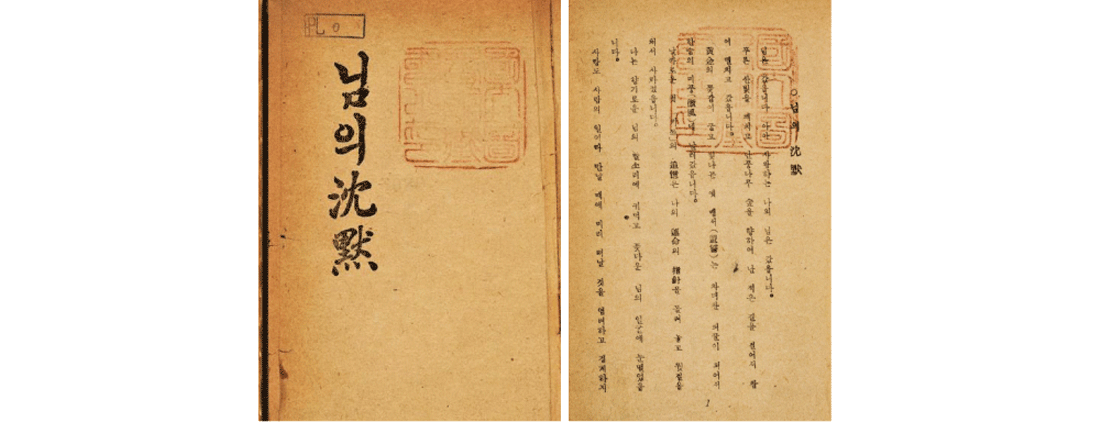 님의 沈默
○님의 沈默
님은 갔습니다 아아 사랑하는 나의 님은 갔습니다。
푸른 산빛을 깨치고 단풍나무 숲을 향하여 난 적은 길을 걸어서 참
어 떨치고 갔습니다。
黃金의 꽃같이 굳고 빛나든 옛 맹서(盟誓)는 차디찬 띠끌이 되어서
한숨의 미풍(微風)에 날러갔습니다。
날카로운 첫 의 追憶은 나의 運命의 指針을 돌려 놓고 뒷걸음
쳐서 사라졌습니다。
나는 향기로운 님의 말소리에 귀먹고 꽃다운 님의 얼굴에 눈멀었습
니다。
사랑도 사람의 일이라 만날 때에 미리 떠날 것을 염려하고 경계하지
1